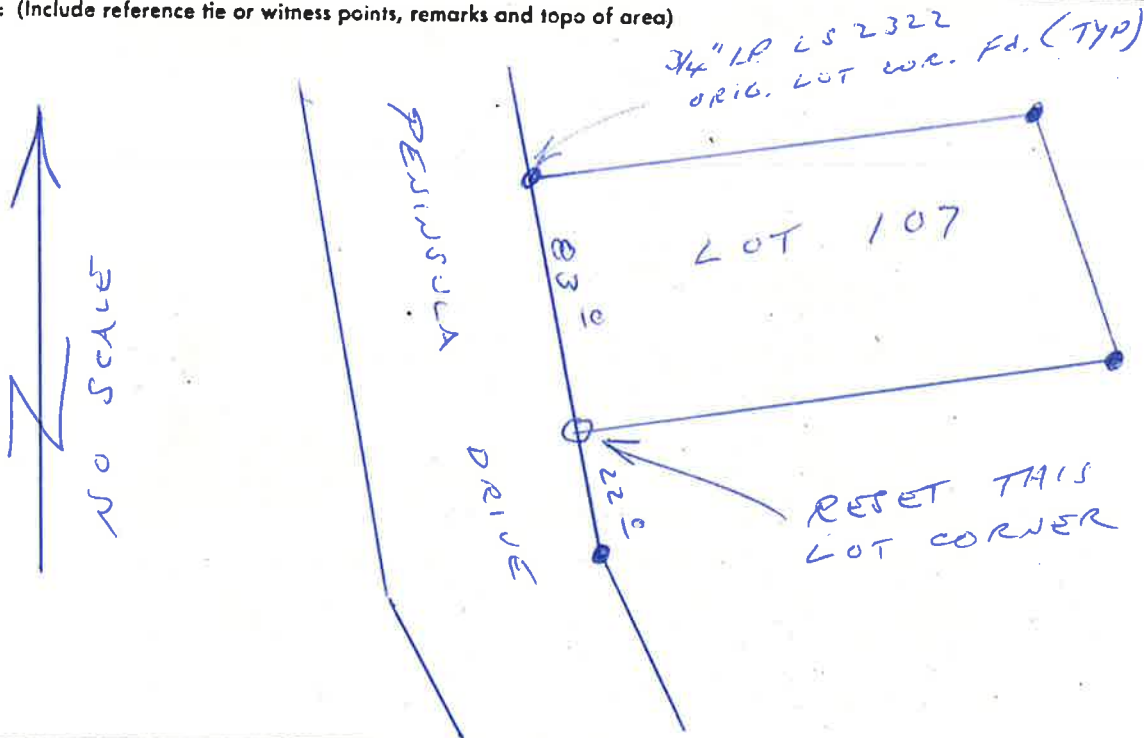 : (Include reference tie or witness points, remarks and topo of area)
3/4" I.P. LS 2322
ORIG. LOT COR. Fd. (TYP)
PENINSULA
DRIVE
LOT 107
83 10
22 0
N
NO SCALE
RESET THIS
LOT CORNER